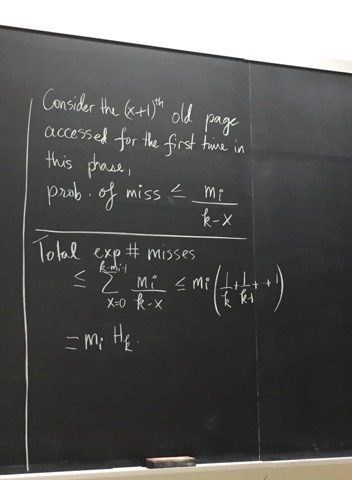 Consider the (x+1)th old page
accessed for the first time in
this phase,
prob. of miss ≤ mi/(k-x)
Total exp # misses
≤ ∑_{x=0}^{k-mi-1} mi/(k-x) ≤ mi(1/k + 1/(k-1) + ·· + 1)
= mi Hk.